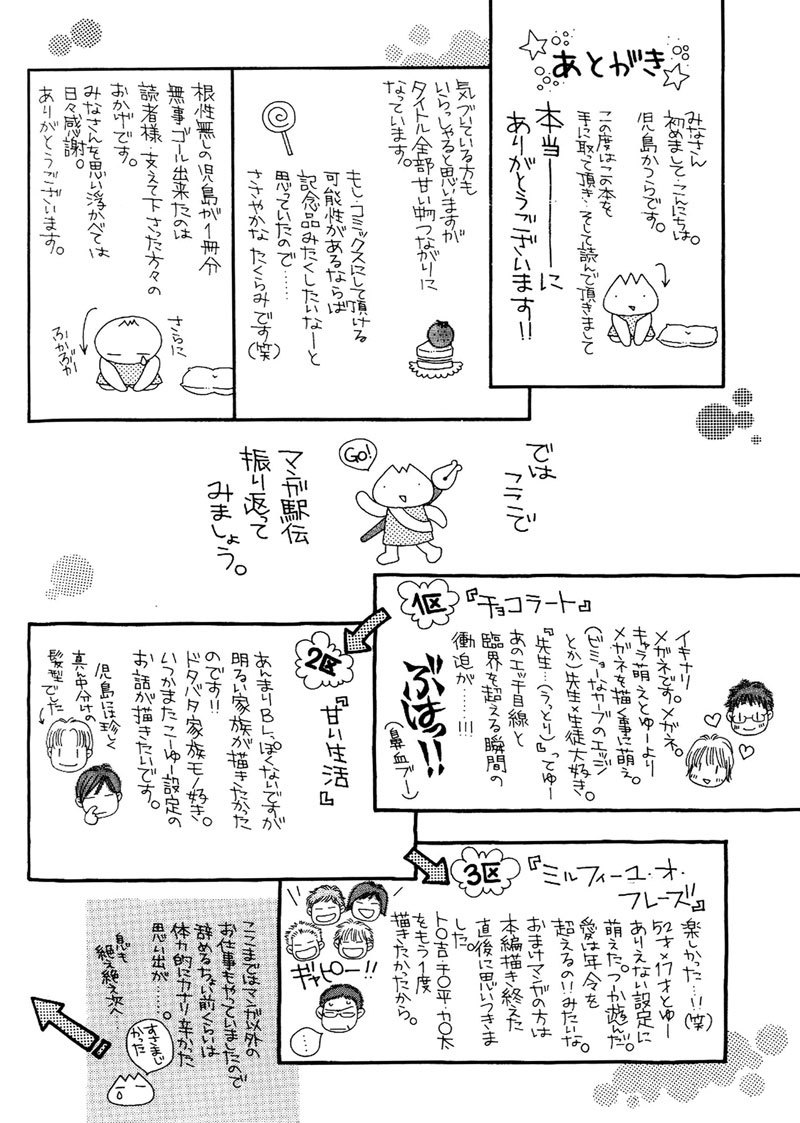 あとがき
みなさん
初めまして・こんにちは。
児島かつらです。
この度はこの本を
手に取って頂き・そして読んで頂きまして
本当――――に
ありがとうございます!!
気づいている方も
いらっしゃると思いますが
タイトル全部甘い物つながりに
なっています。
もし・コミックスにして頂ける
可能性があるならば
記念品みたくしたいなーと
思っていたので……
ささやかなたくらみです(笑)
根性無しの児島が1冊分
無事ゴール出来たのは
読者様・支えて下さった方々の
おかげです。
みなさんを思い浮かべては
日々感謝。
ありがとうございます。
さらに
ふかぶか
では
フラフラで
Go!
マンガ駅伝
振り返って
みましょう。
1区
『チョコラート』
イキナリ
メガネです。メガネ。
キャラ萌えとゆーより
メガネを描く事に萌え。
(ビミョーなカーブのエッジ
とか)先生×生徒大好き。
『先生…(うっとり)』ってゆー
あのエッチ目線と
臨界を超える瞬間の
衝迫が……!!!
ぶはっ!!
(鼻血ブー)
2区
『甘い生活』
あんまりBLぽくないですが
明るい家族が描きたかった
のです!!
ドタバタ家族モノ好き。
いつかまたこーゆー設定の
お話が描きたいです。
児島には珍く
真ん中分けの
髪型でした
3区
『ミルフィーユ・オ・
フレーズ』
楽しかった…!!(笑)
52才×17才とゆー
ありえない設定に
萌えた。つか遊んだ。
愛は年令を
超えるの!!みたいな。
おまけマンガの方は
本編描き終えた
直後に思いつきま
した。
ト○吉・チ○平・カ○太
をもう1度
描きたかったから。
ギャピー!!
……
ここまではマンガ以外の
お仕事もやっていましたので
辞めるちょい前くらいは
体力的にカナリ辛かった
思い出が……。
息も
絶え絶え次へ…
すさまじ
かった